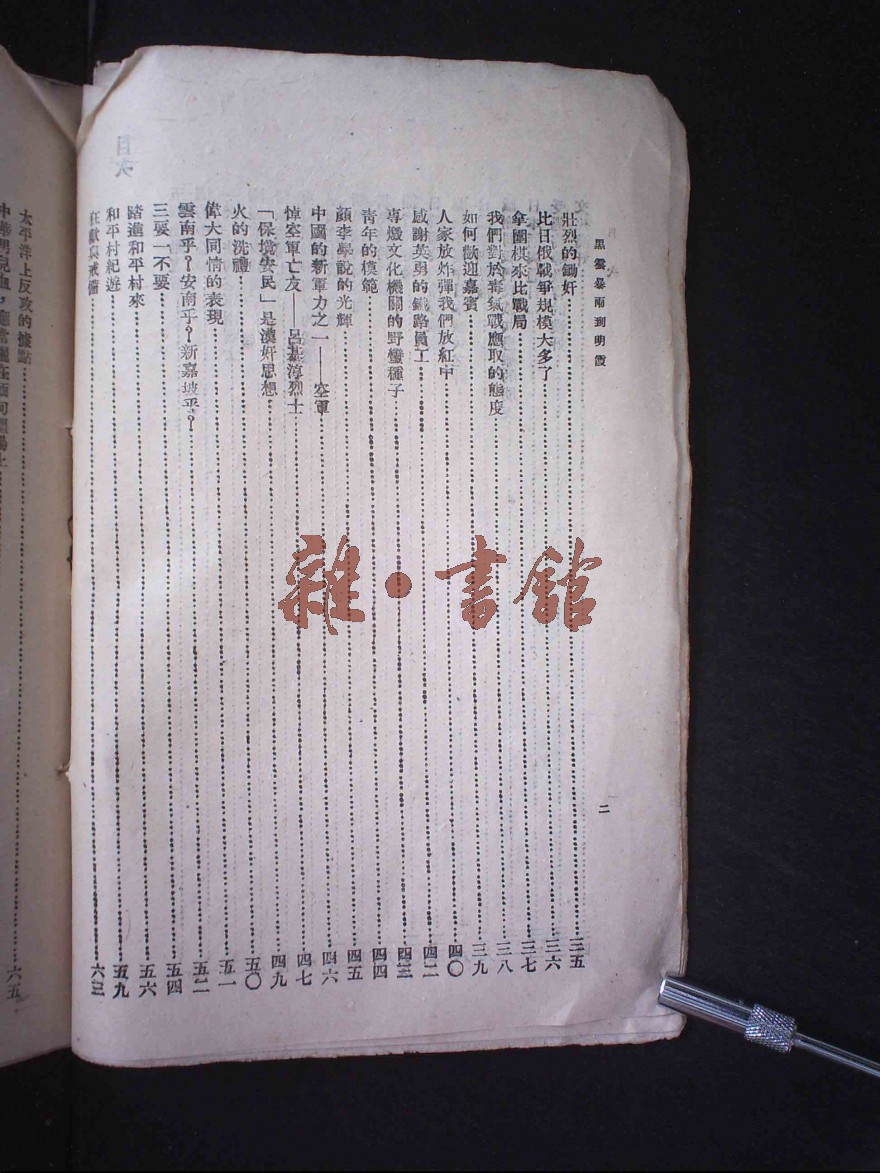 黑雲暴雨到明霞
二
壯烈的鋤奸……三五
比日俄戰爭規模大多了……三六
拿圍棋來比戰局……三七
我們對於毒氣戰應取的態度……三八
如何歡迎嘉賓……三九
人家放炸彈我們放紅中……四〇
感謝英勇的鐵路員工……四二
專燬文化機關的野蠻種子……四三
青年的模範……四四
顏李學說的光輝……四五
中國的新軍力之一——空軍……四六
悼空軍亡友——呂基淳烈士……四七
「保境安民」是漢奸思想……四九
火的洗禮……五〇
偉大同情的表現……五一
雲南乎？安南乎？新嘉坡乎？……五二
三要一不要……五四
踏進和平村來……五六
和平村紀遊……五九
狂歡與戒備……六三
太平洋上反攻的據點……六五
雜·書館